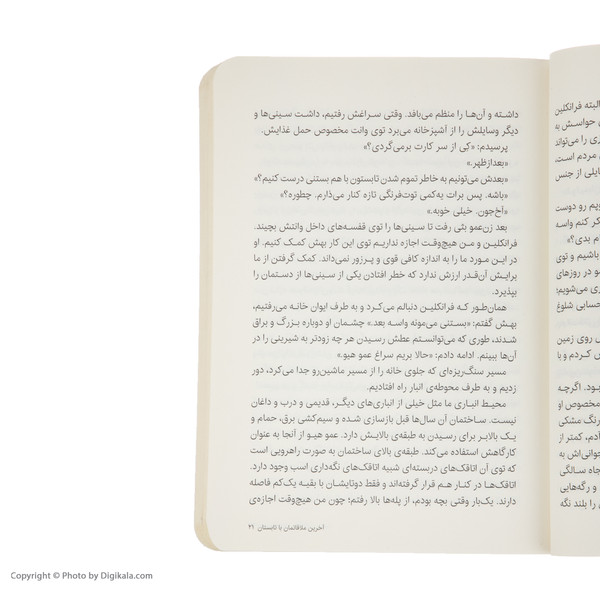 داشته و آن‌ها را منظم می‌بافد. وقتی سراغش رفتیم، داشت سینی‌ها و
دیگر وسایلش را از آشپزخانه می‌برد توی وانت مخصوص حمل غذایش.
پرسیدم: «کِی از سر کارت برمی‌گردی؟»
«بعدازظهر.»
«بعدش می‌تونیم به خاطر تموم شدن تابستون با هم بستنی درست کنیم؟»
«باشه. پس برات یه‌کمی توت‌فرنگی تازه کنار می‌ذارم. چطوره؟»
«آخ‌جون. خیلی خوبه.»
بعد زن‌عمو بثی رفت تا سینی‌ها را توی قفسه‌های داخل وانتش بچیند.
فرانکلین و من هیچ‌وقت اجازه نداریم توی این کار بهش کمک کنیم. او
در این مورد ما را به اندازه کافی قوی و پرزور نمی‌داند. کمک گرفتن از ما
برایش آن‌قدر ارزش ندارد که خطر افتادن یکی از سینی‌ها از دستمان را
بپذیرد.
همان‌طور که فرانکلین دنبالم می‌کرد و به طرف ایوان خانه می‌رفتیم،
بهش گفتم: «بستنی می‌مونه واسه بعد.» چشمان او دوباره بزرگ و براق
شدند، طوری که می‌توانستم عطش رسیدن هر چه زودتر به شیرینی را در
آن‌ها ببینم. ادامه دادم: «حالا بریم سراغ عمو هیو.»
مسیر سنگ‌ریزه‌ای که جلوی خانه را از مسیر ماشین‌رو جدا می‌کرد، دور
زدیم و به طرف محوطه‌ی انبار راه افتادیم.
محیط انباری ما مثل خیلی از انباری‌های دیگر، قدیمی و درب و داغان
نیست. ساختمان آن سال‌ها قبل بازسازی شده و سیم‌کشی برق، حمام و
یک بالابر برای رسیدن به طبقه‌ی بالایش دارد. عمو هیو از آنجا به عنوان
کارگاهش استفاده می‌کند. طبقه‌ی بالای ساختمان به صورت راهرویی است
که توی آن اتاقک‌های دربسته‌ای شبیه اتاقک‌های نگه‌داری اسب وجود دارد.
اتاقک‌ها در کنار هم قرار گرفته‌اند و فقط دوتایشان با بقیه یک‌کم فاصله
دارند. یک‌بار وقتی بچه بودم، از پله‌ها بالا رفتم؛ چون من هیچ‌وقت اجازه‌ی
آخرین ملاقاتمان با تابستان ۲۱
البته فرانکلین
حواسش به
ری را می‌تواند
مردم است.
ایلی از جنس
ویم رو دوست
کر کنم واسه
م بدی؟»
باشیم و توی
و در روزهای
ری می‌شویم؛
حسابی شلوغ
روی زمین
کردم و با
بود. اگرچه
مخصوص او
رنگ مشکی
آدم، کمتر از
جوانی‌اش به
جاه سالگی
و رگه‌هایی
را بلند نگه
Copyright © Photo by Digikala.com